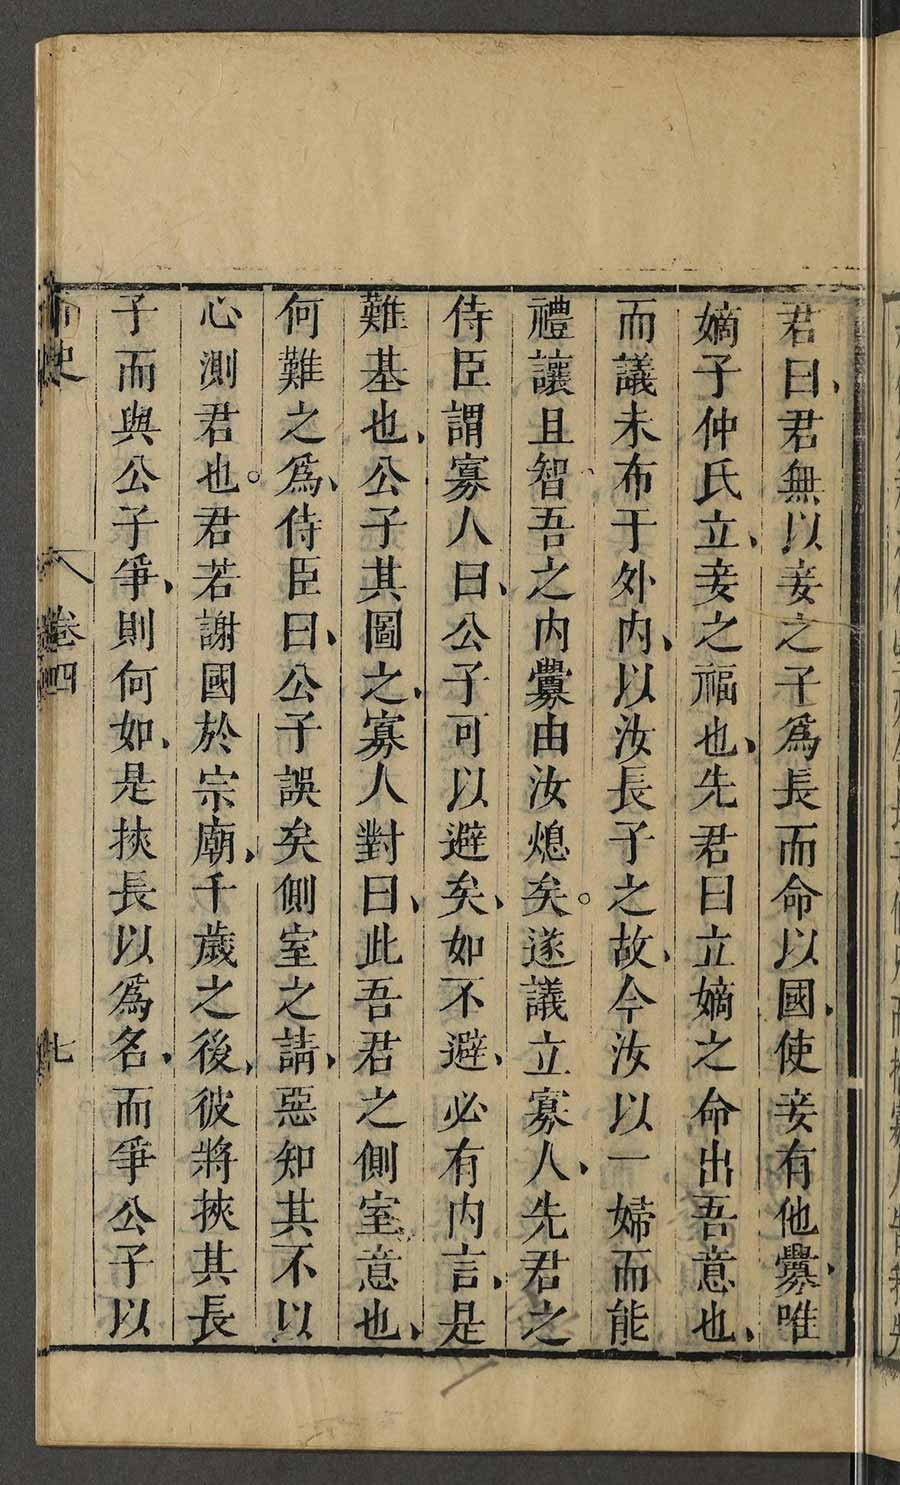 君曰、君無以妾之子爲長而命以國、使妾有他釁、唯
嫡子仲氏立、妾之福也、先君曰立嫡之命出吾意也、
而議未布于外内、以汝長子之故、今汝以一婦而能
禮讓且智吾之内釁由汝熄矣。遂議立寡人、先君之
侍臣謂寡人曰、公子可以避矣、如不避、必有内言、是
難基也、公子其圖之、寡人對曰、此吾君之側室意也、
何難之爲、侍臣曰、公子誤矣側室之請、惡知其不以
心測君也。君若謝國於宗廟、千歲之後、彼將挾其長
子而與公子爭、則何如、是挾長以爲名、而爭公子以
史
卷四
七